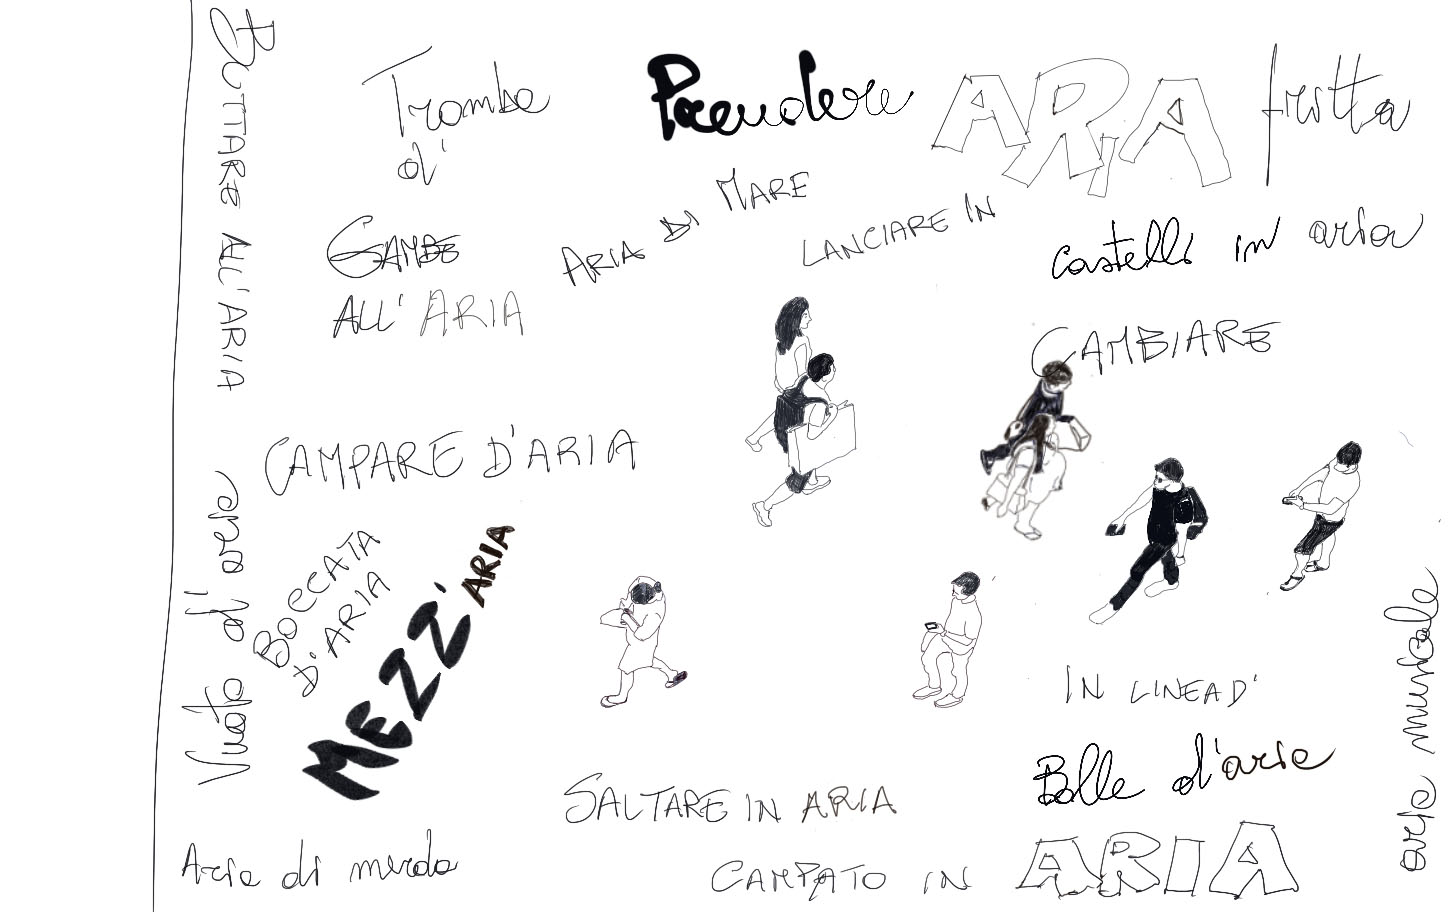 BUTTARE ALL'ARIA
Tromba
d'
Prendere ARIA fritta
ARIA DI MARE
LANCIARE IN
GAMBE
ALL'ARIA
castelli in aria
CAMBIARE
CAMPARE D'ARIA
Vuoto d'aria
BOCCATA
D'ARIA
MEZZ'ARIA
IN LINEA D'
Bolle d'aria
aria musicale
SALTARE IN ARIA
Aria di merda
CAMPATO IN ARIA